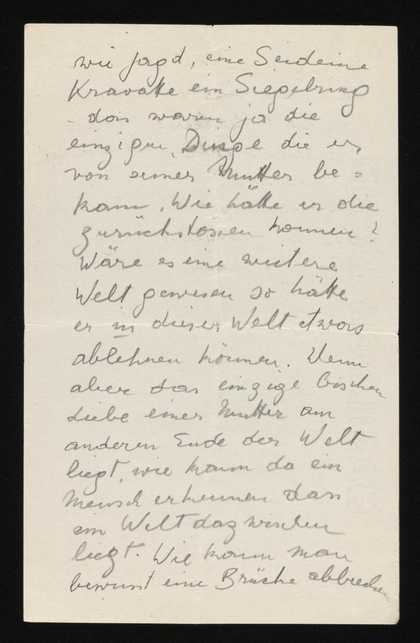 wie Jagd, eine Seidene
Kravatte ein Siegelring
- das waren ja die
einzigen Dinge die er
von seiner Mutter be =
kam. Wie hätte er die
zurückstossen können?
Wäre es eine weitere
Welt gewesen so hätte
er in dieser Welt etwas
ablehnen können. Wenn
aber das einzige bischen
Liebe einer Mutter am
anderen Ende der Welt
liegt, wie kann da ein
Mensch erkennen dass
ein Welt dazwischen
liegt. Wie kann man
bewusst eine Brücke abbrechen